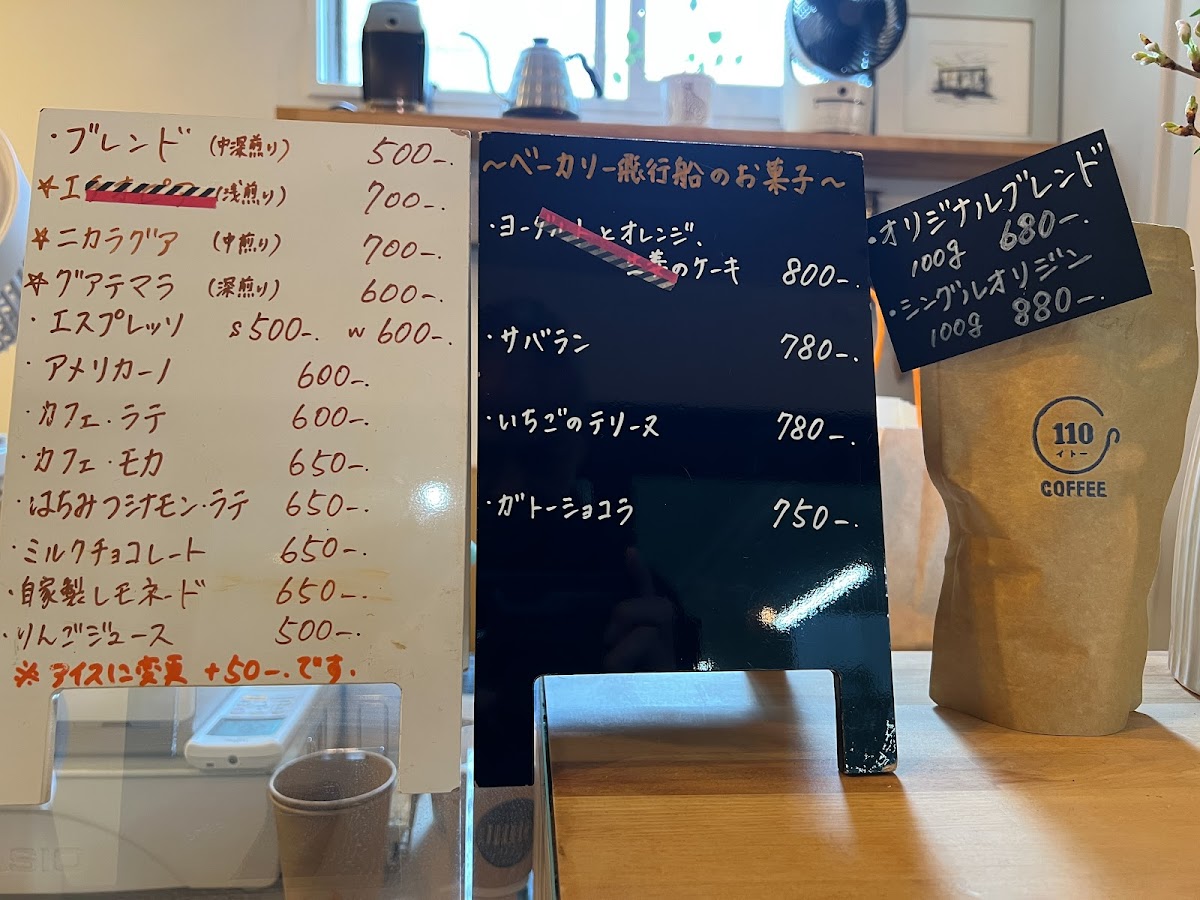 ・ブレンド (中深煎り) 500-.
☆エ (浅煎り) 700-.
☆ニカラグア (中煎り) 700-.
☆グアテマラ (深煎り) 600-.
・エスプレッソ s 500-. w 600-.
・アメリカーノ 600-.
・カフェ・ラテ 600-.
・カフェ・モカ 650-.
・はちみつシナモン・ラテ 650-.
・ミルクチョコレート 650-.
・自家製レモネード 650-.
・りんごジュース 500-.
※アイスに変更 +50-.です.
～ベーカリー飛行船のお菓子～
・ヨーグルトとオレンジ、
のケーキ 800-.
・サバラン 780-.
・いちごのテリーヌ 780-.
・ガトーショコラ 750-.
・オリジナルブレンド
100g 680-.
・シングルオリジン
100g 880-.
110
イトー
COFFEE